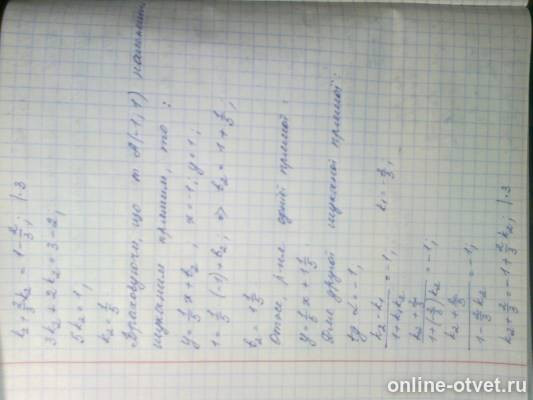 k₂ + 2/3 k₂ = 1 - 2/3; | · 3
3k₂ + 2k₂ = 3 - 2;
5k₂ = 1,
k₂ = 1/5
Враховуючи, що т. A(-1; 1) належить
шуканим прямим, то :
y = 1/5 x + b₂, x = -1; y = 1;
1 = 1/5 · (-1) + b₂; => b₂ = 1 + 1/5;
b₂ = 1 1/5
Отже, р-ня одній прямой :
y = 1/5 x + 1 1/5
Для другой шуканой прямой :
tg α = -1,
(k₂ - k₁)/(1 + k₁k₂) = -1, k₁ = -2/3;
(k₂ + 2/3)/(1 + (-2/3)k₂) = -1,
(k₂ + 2/3)/(1 - 2/3 k₂) = -1,
k₂ + 2/3 = -1 + 2/3 k₂; | · 3
online-otvet.ru